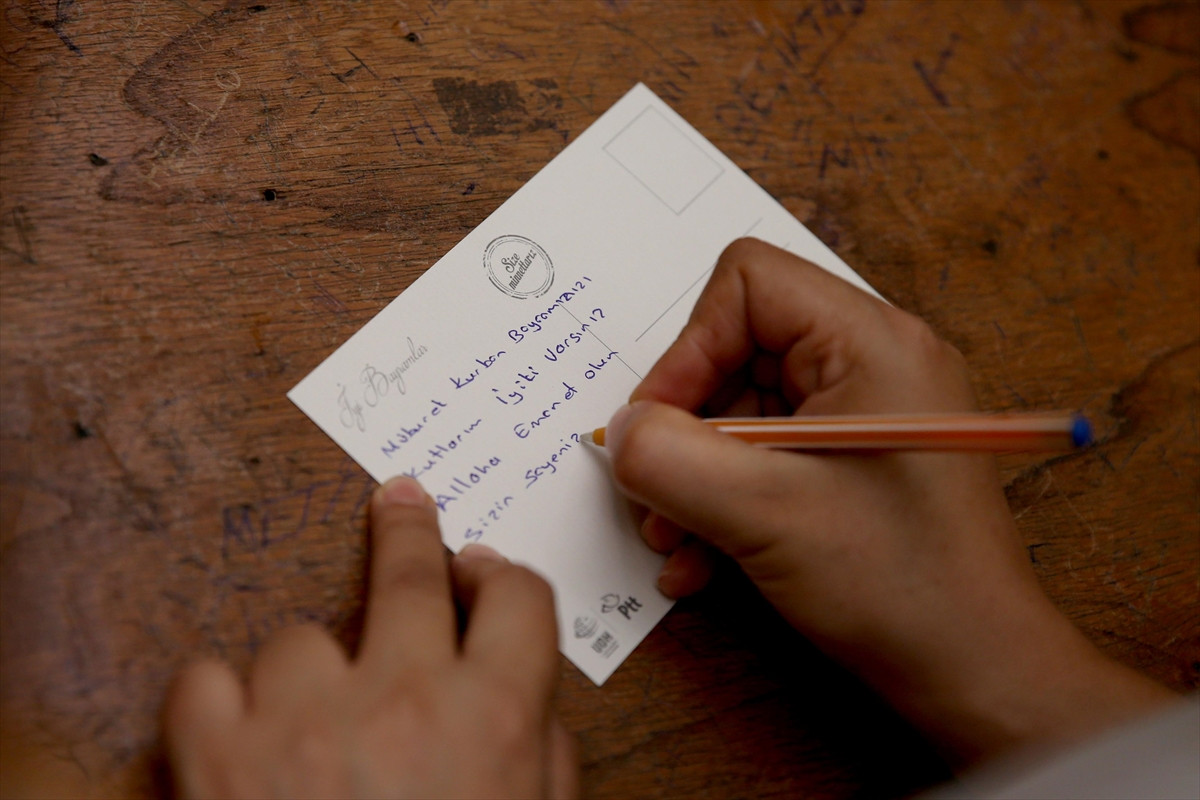 Size
minnettarız
İyi Bayramlar
Mübarek Kurban Bayramınızı
Kutlarım İyiki Varsınız
Allaha Emanet olun
Sizin Sayeniz
UDH
Ptt